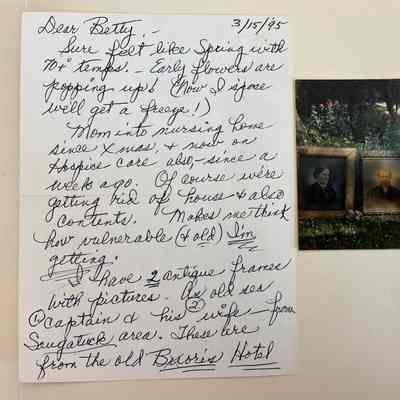 Dear Betty, - 3/15/95
Sure felt like Spring with
70+° temps. - Early flowers are
popping up! (Now I spose
we'll get a freeze!)
Mom into nursing home
since Xmas, & now on
Hospice care also, - since a
week ago. Of course we're
getting rid of house & also
contents. Makes me think
how vulnerable (& old) I'm
getting.
I have 2 antique frames
with pictures. An old sea
① captain & his ② wife - from
Saugatuck area. These are
from the old Hotel